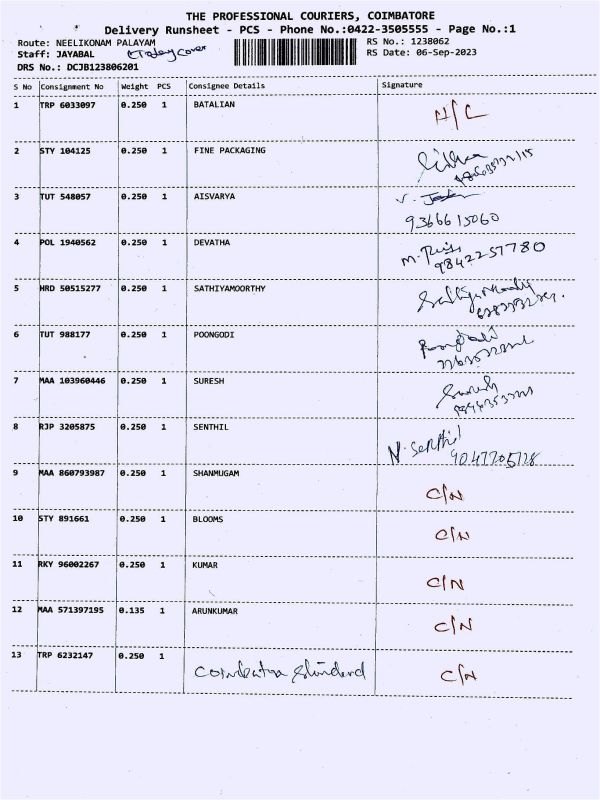 THE PROFESSIONAL COURIERS, COIMBATORE
Delivery Runsheet - PCS - Phone No.:0422-3505555 - Page No.:1
Route: NEELIKONAM PALAYAM RS No.: 1238062
Staff: JAYABAL RS Date: 06-Sep-2023
DRS No.: DCJB123806201
S No Consignment No Weight PCS Consignee Details Signature
1 TRP 6033097 0.250 1 BATALIAN H/C
2 STY 104125 0.250 1 FINE PACKAGING
3 TUT 548057 0.250 1 AISVARYA
9366615060
4 POL 1940562 0.250 1 DEVATHA
9842257780
5 HRD 50515277 0.250 1 SATHIYAMOORTHY
6 TUT 988177 0.250 1 POONGODI
7 MAA 103960446 0.250 1 SURESH Suresh
8 RJP 3205875 0.250 1 SENTHIL N. Senthil
9047205728
9 MAA 860793987 0.250 1 SHANMUGAM C/N
10 STY 891661 0.250 1 BLOOMS C/N
11 RKY 96002267 0.250 1 KUMAR C/N
12 MAA 571397195 0.135 1 ARUNKUMAR C/N
13 TRP 6232147 0.250 1 C/N